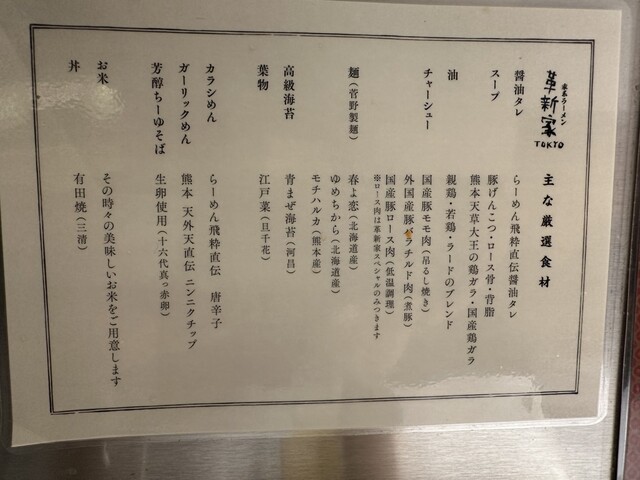 家系ラーメン
革新家
TOKYO
主な厳選食材
醤油タレ らーめん飛粋直伝醤油タレ
スープ 豚げんこつ・ロース骨・背脂
熊本天草大王の鶏ガラ・国産鶏ガラ
油 親鶏・若鶏・ラードのブレンド
チャーシュー 国産豚モモ肉(吊るし焼き)
外国産豚バラチルド肉(煮豚)
国産豚ロース肉(低温調理)
※ロース肉は革新家スペシャルのみつきます
麺(菅野製麺) 春よ恋(北海道産)
ゆめちから(北海道産)
モチハルカ(熊本産)
高級海苔 青まぜ海苔(河昌)
葉物 江戸菜(旦千花)
カラシめん らーめん飛粋直伝 唐辛子
ガーリックめん 熊本 天外天直伝 ニンニクチップ
芳醇ちーゆそば 生卵使用(十六代真っ赤卵)
お米 その時々の美味しいお米をご用意します
丼 有田焼(三清)